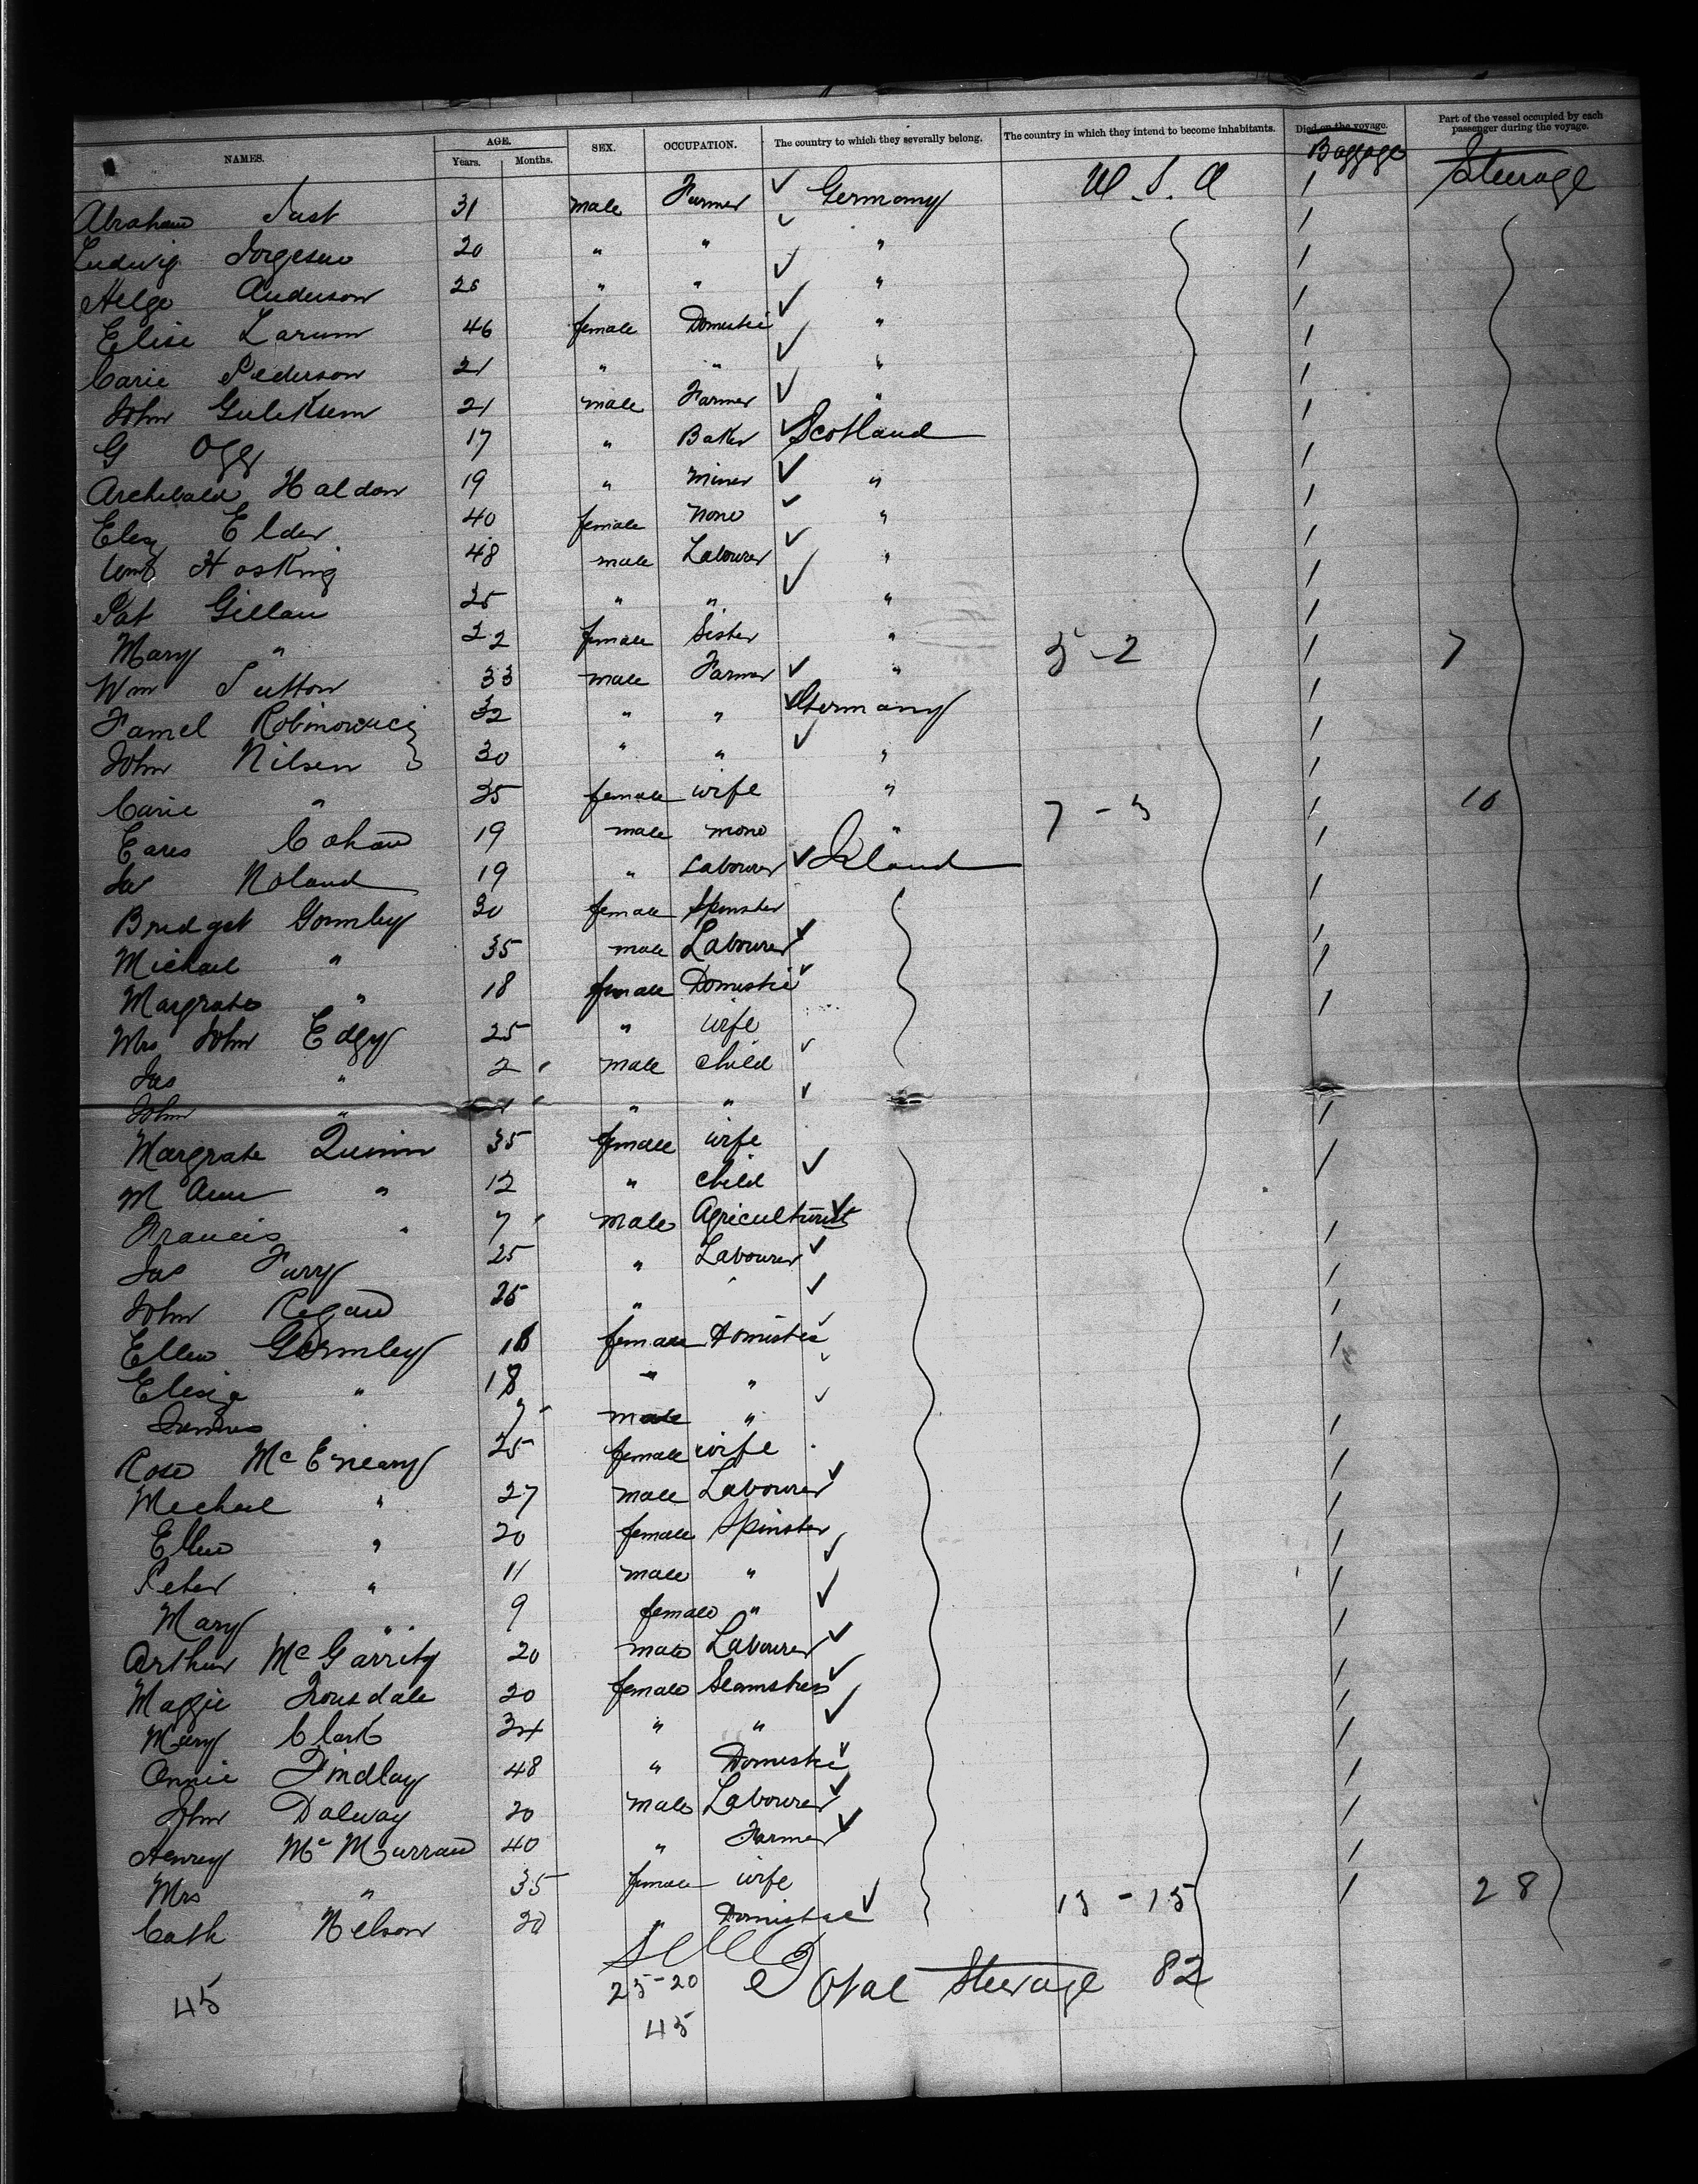 NAMES. AGE. Years. Months. SEX. OCCUPATION. The country to which they severally belong. The country in which they intend to become inhabitants. Died on the voyage. Baggage Part of the vessel occupied by each passenger during the voyage.
Abraham Just 31 male Farmer ✓ Germany U.S.A / Steerage
Ludwig 20 " " ✓ " /
Helge Anderson 26 " " ✓ " /
Elise Larum 46 female Domestic ✓ " /
Carie Pederson 21 " " ✓ " /
John 21 male Farmer ✓ " /
G Ogg 17 " Baker ✓ Scotland /
Archibald Haldon 19 " miner ✓ " /
Eliz Elder 40 female none ✓ " /
Wm Hosking 48 male Labourer ✓ " /
Pat Gillan 25 " " ✓ " /
Mary " 22 female Sister " 5-2 / 7
Wm Sutton 33 male Farmer ✓ " /
32 " " ✓ Germany /
John Nilsen 30 " " ✓ " /
Carie " 35 female wife " /
Cohan 19 male none " 7-3 / 10
Jas Noland 19 " Labourer ✓ Ireland /
Bridget Gormley 30 female Spinster /
Michael " 35 male Labourer ✓ /
Margrate " 18 female Domestic ✓ /
Mrs John Edgy 25 " wife /
Jas " 2 male child ✓
John " " " ✓
Margrate Quinn 35 female wife /
M Ann " 12 " child ✓ /
Francis " 7 male Agriculturist ✓
Jas Furry 25 " Labourer ✓ /
John Regan 25 " " ✓ /
Ellen Gormley 18 female Domistic ✓ /
Eliza " 18 " " ✓ /
James 7 male " ✓
Rose McEneany 25 female wife /
Mechael " 27 male Labourer ✓ /
Ellen " 20 female Spinster /
Peter " 11 male " ✓ /
Mary " 9 female " ✓ /
Arthur McGarrity 20 male Labourer ✓ /
Maggie Trousdale 20 female Seamstress ✓ /
Mary Clark 34 " " ✓ /
Annie Findlay 48 " Domestic ✓ /
John Dalway 20 male Labourer ✓ /
Henrey McMurran 40 " Farmer ✓ /
Mrs " 35 female wife /
Cath Nelson 20 " Domistic ✓ 13-15 / 28
45 25-20 Total Steerage 82
45